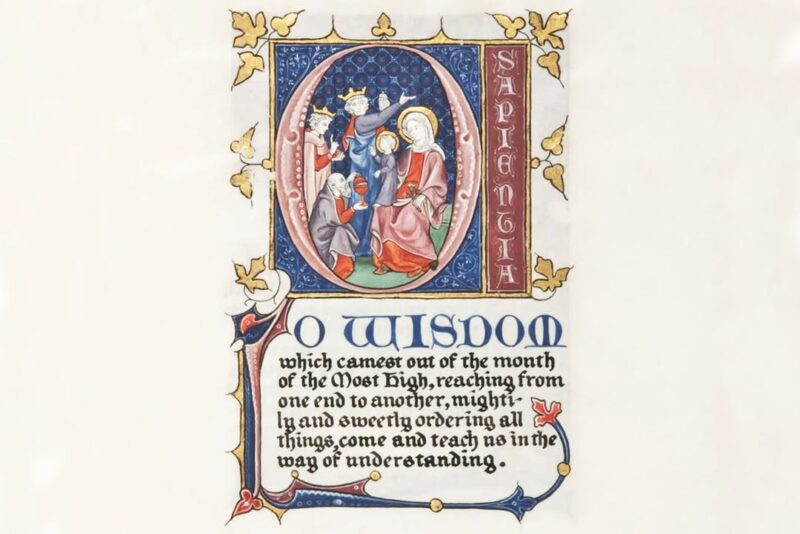 O SAPIENTIA
O WISDOM
which camest out of the month
of the Most High, reaching from
one end to another, mighti-
ly and sweetly ordering all
things, come and teach us in the
way of understanding.